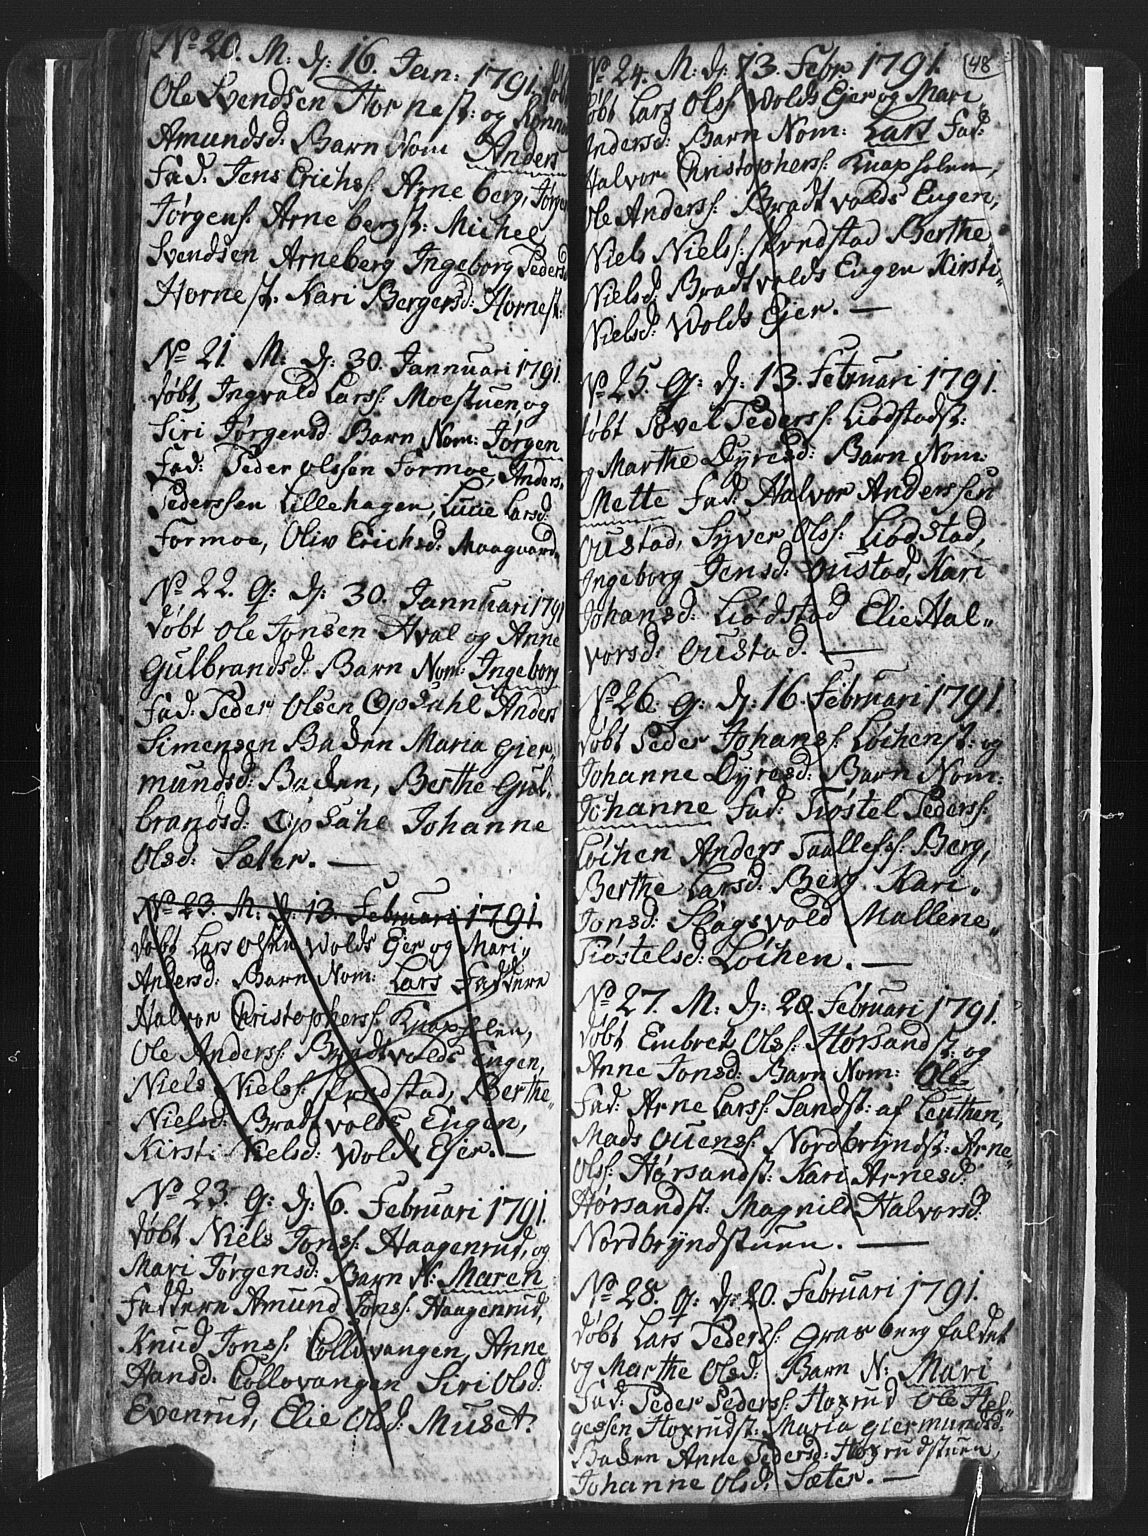 No 20. M. Dj: 16. Jan: 1791. døbt
Ole Svendsen Hornest: og Rønnau
Amundsd: Barn Nom Anders
Fad: Jens Erichs: Arneberg, Jørgen
Jørgens: Arnebergst: Michel
Svendsen Arneberg Ingeborg Pedersd
Hornest. Kari Bergersd: Hornest:
No 21. M: Dj: 30. Jannuari 1791.
døbt Ingvald Larss: Moestuen og
Siri Jørgensd Barn Nom: Jørgen
Fad: Peder Olssen Formoe, Anders
Pederssen Lillehagen, Lucie Larsd:
Formoe, Oliv Erichsd: Moagaard
No 22. q: Dj: 30. Jannuari 1791
døbt Ole Jonsen Hval og Anne
Gulbrandsd: Barn Nom: Ingeborg
Fad: Peder Olsen Opsahl Anders
Simensen Baden Maria Gier„
mundsd: Baden, Berthe Gul„
brandsd: Opsahl Johanne
Olsd: Sæter. —
No 23. M: Dj: 13. Februari 1791.
døbt Lars Olsen Wolds Ejer og Mari„
Andersd: Barn Nom: Lars Faddere
Halvor Christophers: Knapholen,
Ole Anderss: Bradtvolds Eugen,
Niels Nielss: Strndstad, Berthe„
Nielsd: Bradtvolds Eugen,
Kirsti Nielsd: Wolds Ejer. —
No 23. q: Dj: 6. Februari 1791.
døbt Niels Jonss: Haagenrud, og
Mari Jørgensd: Barn N: Maren
Faddere Amund Jonss: Haagenrud,
Knud Jonss: Collovangen, Anne
Hansd: Collovangen Siri Olsd:
Evenrud, Elie Olsd: Muset.
48
No 24. M: Dj: 13. Febr. 1791.
døbt Lars Olss: Wolds Ejer og Mari„
Andersd: Barn Nom: Lars Fad:
Halvor Christopherss: Knapholen,
Ole Anderss: Bradtvolds Eugen,
Niels Nielss: Strndstad Berthe
Nielsd: Bradtvolds Eugen Kirsti„
Nielsd: Wolds Ejer. —
No 25. q: Dj: 13. Februari 1791.
døbt Povel Pederss: Liodstadst:
og Marthe Dyresd: Barn Nom:
Mette Fad: Halvor Anderssen
Oustad, Syver Olss: Liodstad,
Ingeborg Jensd: Oustad, Kari
Johansd: Liødstad Elie Hal„
vorsd: Oustad. —
No 26. q: Dj: 16. Februari 1791.
døbt Peder Johanss: Løchenst: og
Johanne Dyresd: Barn Nom:
Johanne Fad: Tiøstel Pederss:
Løchen Anders Taallefss: Berg,
Berthe Larsd: Berg. Kari„
Jonsd: Slagsvold Mallene„
Tiøstelsd: Løchen. —
No 27. M: Dj: 20. Februari 1791.
døbt Embret Olss: Hørsandst: og
Anne Jonsd: Barn Nom: Ole
Fad: Arne Larss: Sandst: af Leuthen,
Mads Ouenss: Nordbryndst: Arne„
Olss: Hørsandst: Kari Arnesd:
Hørsandst: Magnild Halvorsd:
Nordbryndstuen. —
No 28. q: Dj: 20. Februari 1791.
døbt Lars Pederss: Grasbergfaldet
og Marthe Olsd: Barn N: Mari
Fad: Peder Pederss: Hoxrud Ole Hel„
gessen Hoxrudst: Maria Giermundsd:
Baden Anne Pedersd: Hoxrudstuen,
Johanne Olsd: Sæter. —